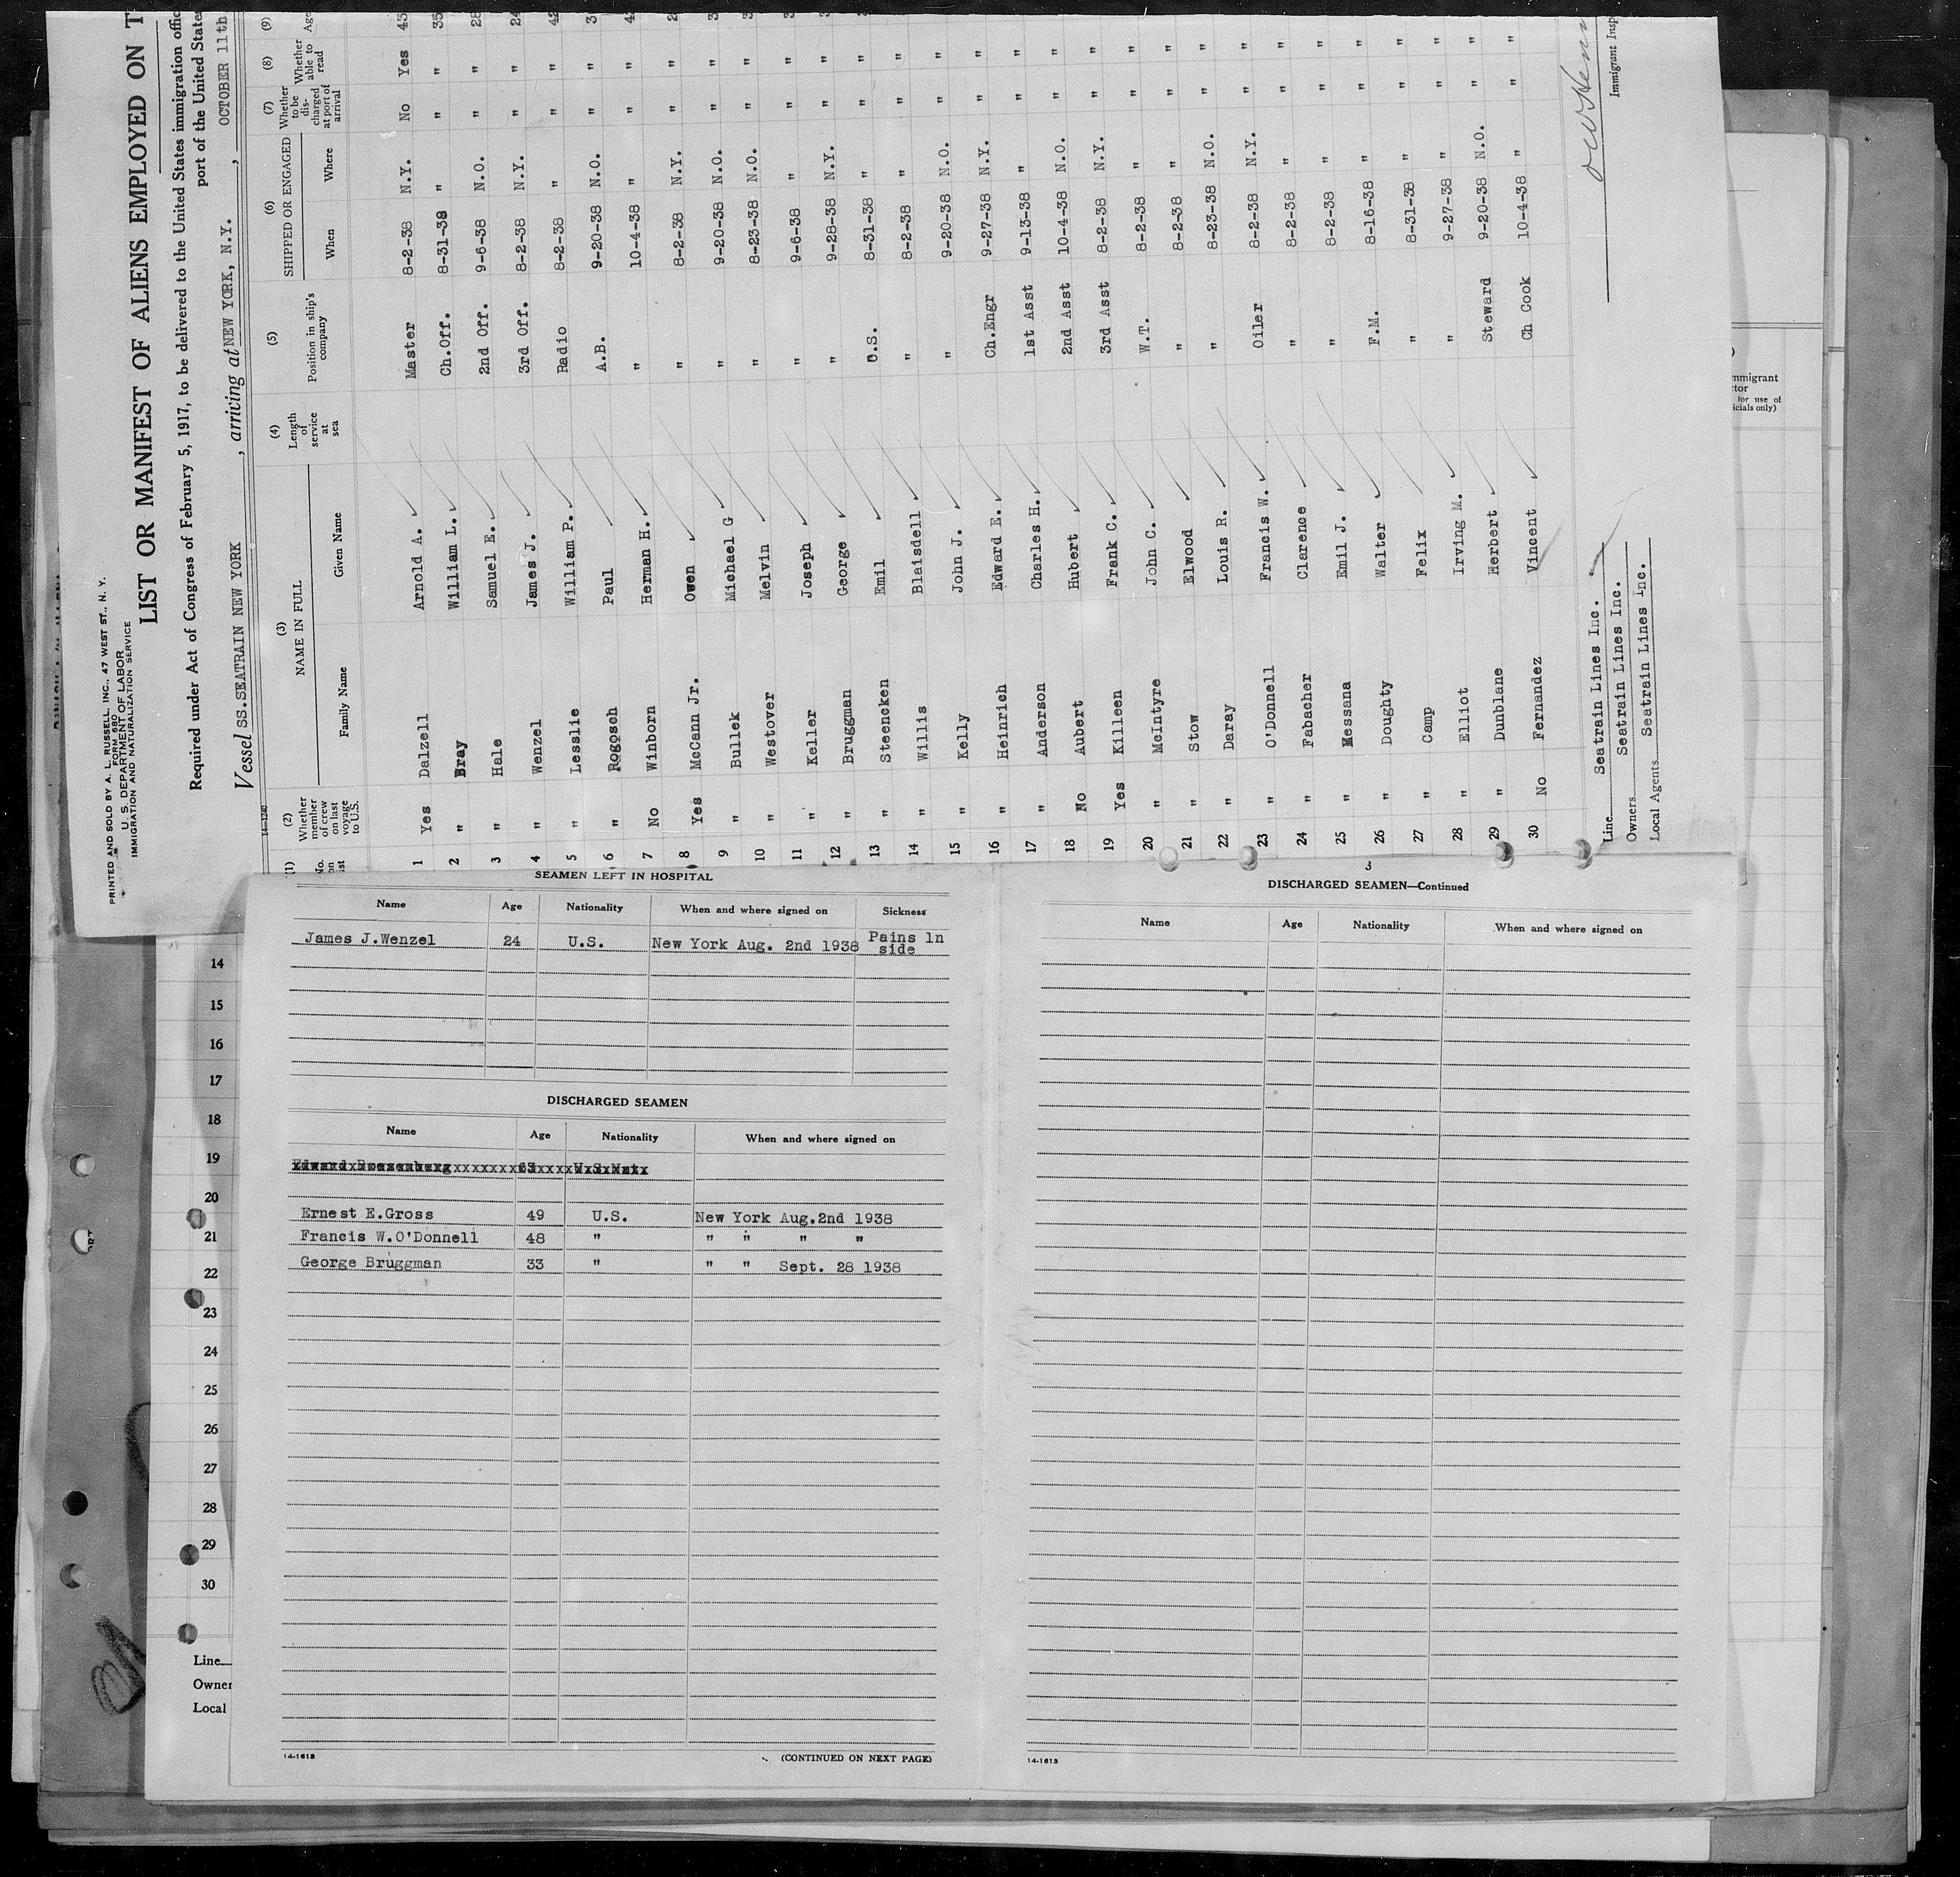 PRINTED AND SOLD BY A. L. RUSSELL, INC., 47 WEST ST., N. Y.
FORM 680
U. S. DEPARTMENT OF LABOR
IMMIGRATION AND NATURALIZATION SERVICE
LIST OR MANIFEST OF ALIENS EMPLOYED ON T
Required under Act of Congress of February 5, 1917, to be delivered to the United States immigration offic
port of the United State
Vessel SS.SEATRAIN NEW YORK, arriving at NEW YORK, N.Y., OCTOBER 11th
14-1240
(1) (2) (3) (4) (5) (6) (7) (8) (9)
No. on list Whether member of crew on last voyage to U.S. NAME IN FULL Length of service at sea Position in ship's company SHIPPED OR ENGAGED Whether to be discharged at port of arrival Whether able to read Age
Family Name Given Name When Where
1 Yes Dalzell Arnold A. Master 8-2-38 N.Y. No Yes 43
2 " Bray William L. Ch.Off. 8-31-38 " " " 35
3 " Hale Samuel E. 2nd Off. 9-6-38 N.O. " " 28
4 " Wenzel James J. 3rd Off. 8-2-38 N.Y. " " 24
5 " Lesslie William P. Radio 8-2-38 " " " 42
6 " Rogosch Paul A.B. 9-20-38 N.O. " " 3
7 No Winborn Herman H. " 10-4-38 " " " 4
8 Yes McCann Jr. Owen " 8-2-38 N.Y. " " 2
9 " Bullek Michael G " 9-20-38 N.O. " " 3
10 " Westover Melvin " 8-23-38 N.O. " " 3
11 " Keller Joseph " 9-6-38 " " " 3
12 " Bruggman George " 9-28-38 N.Y. " " 3
13 " Steencken Emil O.S. 8-31-38 " " " 2
14 " Willis Blaisdell " 8-2-38 " " "
15 " Kelly John J. " 9-20-38 N.O. " "
16 " Heinrich Edward E. Ch.Engr 9-27-38 N.Y. " "
17 " Anderson Charles H. 1st Asst 9-13-38 " " "
18 No Aubert Hubert 2nd Asst 10-4-38 N.O. " "
19 Yes Killeen Frank C. 3rd Asst 8-2-38 N.Y. " "
20 " McIntyre John C. W.T. 8-2-38 " " "
21 " Stow Elwood " 8-2-38 " " "
22 " Daray Louis R. " 8-23-38 N.O. " "
23 " O'Donnell Francis W. Oiler 8-2-38 N.Y. " "
24 " Fabacher Clarence " 8-2-38 " " "
25 " Messana Emil J. " 8-2-38 " " "
26 " Doughty Walter F.M. 8-16-38 " " "
27 " Camp Felix " 8-31-38 " " "
28 " Elliot Irving M. " 9-27-38 " " "
29 " Dunblane Herbert Steward 9-20-38 N.O. " "
30 No Fernandez Vincent Ch Cook 10-4-38 " " "
Line Seatrain Lines Inc.
Owners Seatrain Lines Inc.
Local Agents Seatrain Lines Inc.
Immigrant Insp
mmigrant
ctor
for use of
icials only)
SEAMEN LEFT IN HOSPITAL
Name Age Nationality When and where signed on Sickness
James J.Wenzel 24 U.S. New York Aug. 2nd 1938 Pains in
side
DISCHARGED SEAMEN
Name Age Nationality When and where signed on
Ernest E.Gross 49 U.S. New York Aug.2nd 1938
Francis W.O'Donnell 48 " " " " "
George Bruggman 33 " " " Sept. 28 1938
14-1613
(CONTINUED ON NEXT PAGE)
3
DISCHARGED SEAMEN—Continued
Name Age Nationality When and where signed on
14-1613
14
15
16
17
18
19
20
21
22
23
24
25
26
27
28
29
30
Line
Owner
Local